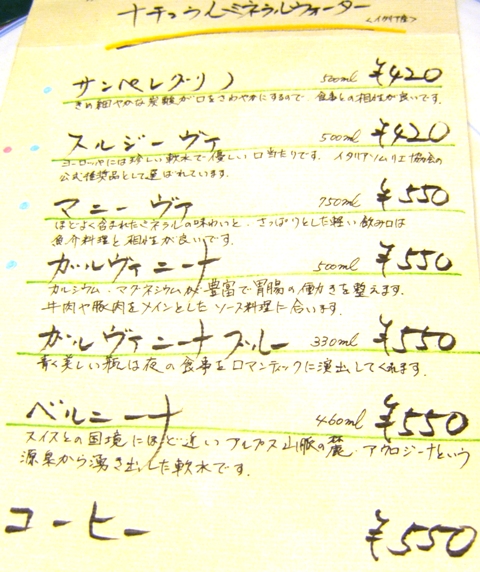 ナチュラルミネラルウォーター
<イタリア産>
サンペレグリノ 500ml ¥420
きめ細やかな炭酸が口をさわやかにするので、食事との相性が良いです。
スルジーヴァ 500ml ¥420
ヨーロッパには珍しい軟水で優しい口当たりです。イタリアソムリエ協会の
公式推奨品として選ばれています。
マニーヴァ 750ml ¥550
ほどよく含まれたミネラルの味わいと、さっぱりとした軽い飲み口は
魚介料理と相性が良いです。
ガルヴァニーナ 500ml ¥550
カルシウム、マグネシウムが豊富で胃腸の働きを整えます。
牛肉や豚肉をメインとしたソース料理に合います。
ガルヴァニーナブルー 330ml ¥550
青く美しい瓶は夜の食事をロマンティックに演出してくれます。
ベルニーナ 460ml ¥550
スイスとの国境にほど近いアルプス山脈の麓、アウロジーナという
源泉から湧き出した軟水です。
コーヒー ¥550